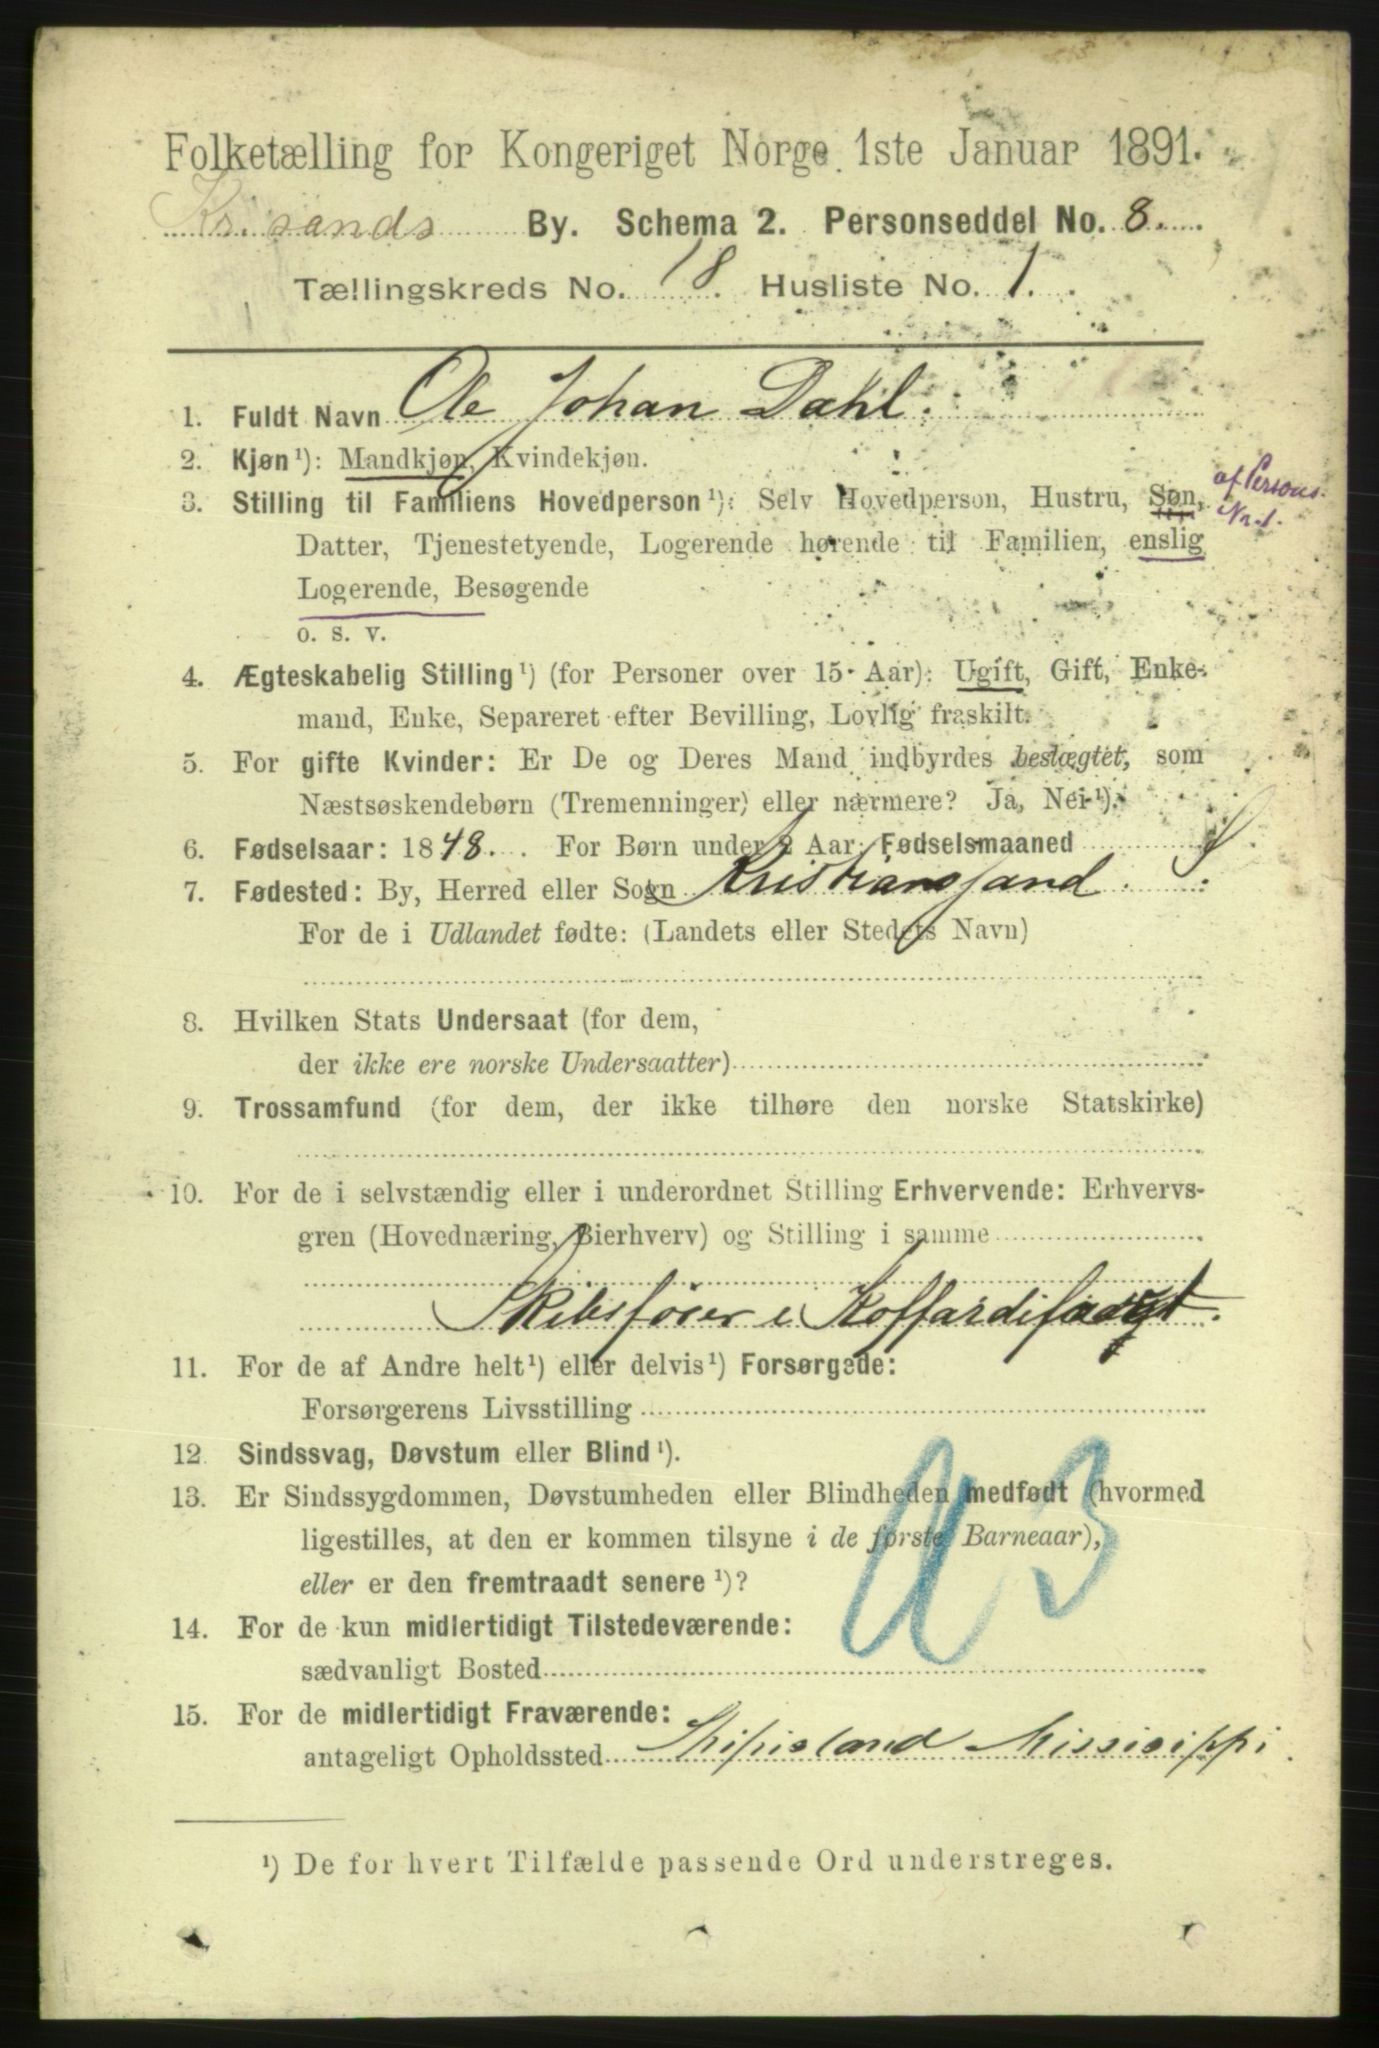 Folketælling for Kongeriget Norge 1ste Januar 1891.
Kr.sands By. Schema 2. Personseddel No. 8.
Tællingskreds No. 18. Husliste No. 1.
1. Fuldt Navn Ole Johan Dahl.
2. Kjøn¹): Mandkjøn, Kvindekjøn.
3. Stilling til Familiens Hovedperson¹): Selv Hovedperson, Hustru, Søn, af Persons.
Nr. 1.
Datter, Tjenestetyende, Logerende hørende til Familien, enslig
Logerende, Besøgende
o. s. v.
4. Ægteskabelig Stilling¹) (for Personer over 15 Aar): Ugift, Gift, Enke-
mand, Enke, Separeret efter Bevilling, Lovlig fraskilt.
5. For gifte Kvinder: Er De og Deres Mand indbyrdes beslægtet, som
Næstsøskendebørn (Tremenninger) eller nærmere? Ja, Nei¹).
6. Fødselsaar: 1848. For Børn under 2 Aar: Fødselsmaaned
7. Fødested: By, Herred eller Sogn Kristianssand. S
For de i Udlandet fødte: (Landets eller Stedets Navn)
8. Hvilken Stats Undersaat (for dem,
der ikke ere norske Undersaatter)
9. Trossamfund (for dem, der ikke tilhøre den norske Statskirke)
10. For de i selvstændig eller i underordnet Stilling Erhvervende: Erhvervs-
gren (Hovednæring, Bierhverv) og Stilling i samme
Skibsfører i Koffardifart.
11. For de af Andre helt¹) eller delvis¹) Forsørgede:
Forsørgerens Livsstilling
12. Sindssvag, Døvstum eller Blind¹).
13. Er Sindssygdommen, Døvstumheden eller Blindheden medfødt (hvormed
ligestilles, at den er kommen tilsyne i de første Barneaar),
eller er den fremtraadt senere¹)?
14. For de kun midlertidigt Tilstedeværende:
sædvanligt Bosted
15. For de midlertidigt Fraværende:
antageligt Opholdssted Shipisland Missisippi.
¹) De for hvert Tilfælde passende Ord understreges.